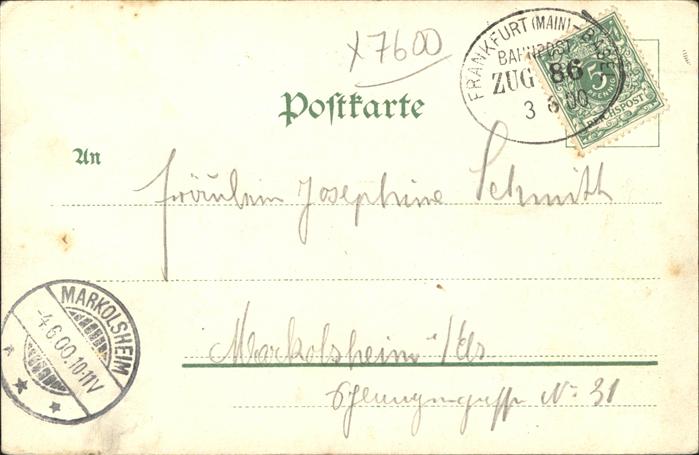 x 7600
FRANKFURT (MAIN) - BASEL
BAHNPOST
ZUG 86
3 6 00
5
PFENNIG
REICHSPOST
Postkarte
An
Fräulein Josephine Schmitt
MARKOLSHEIM
-4.6.00.10-11V
Markolsheim i/Els
No 31